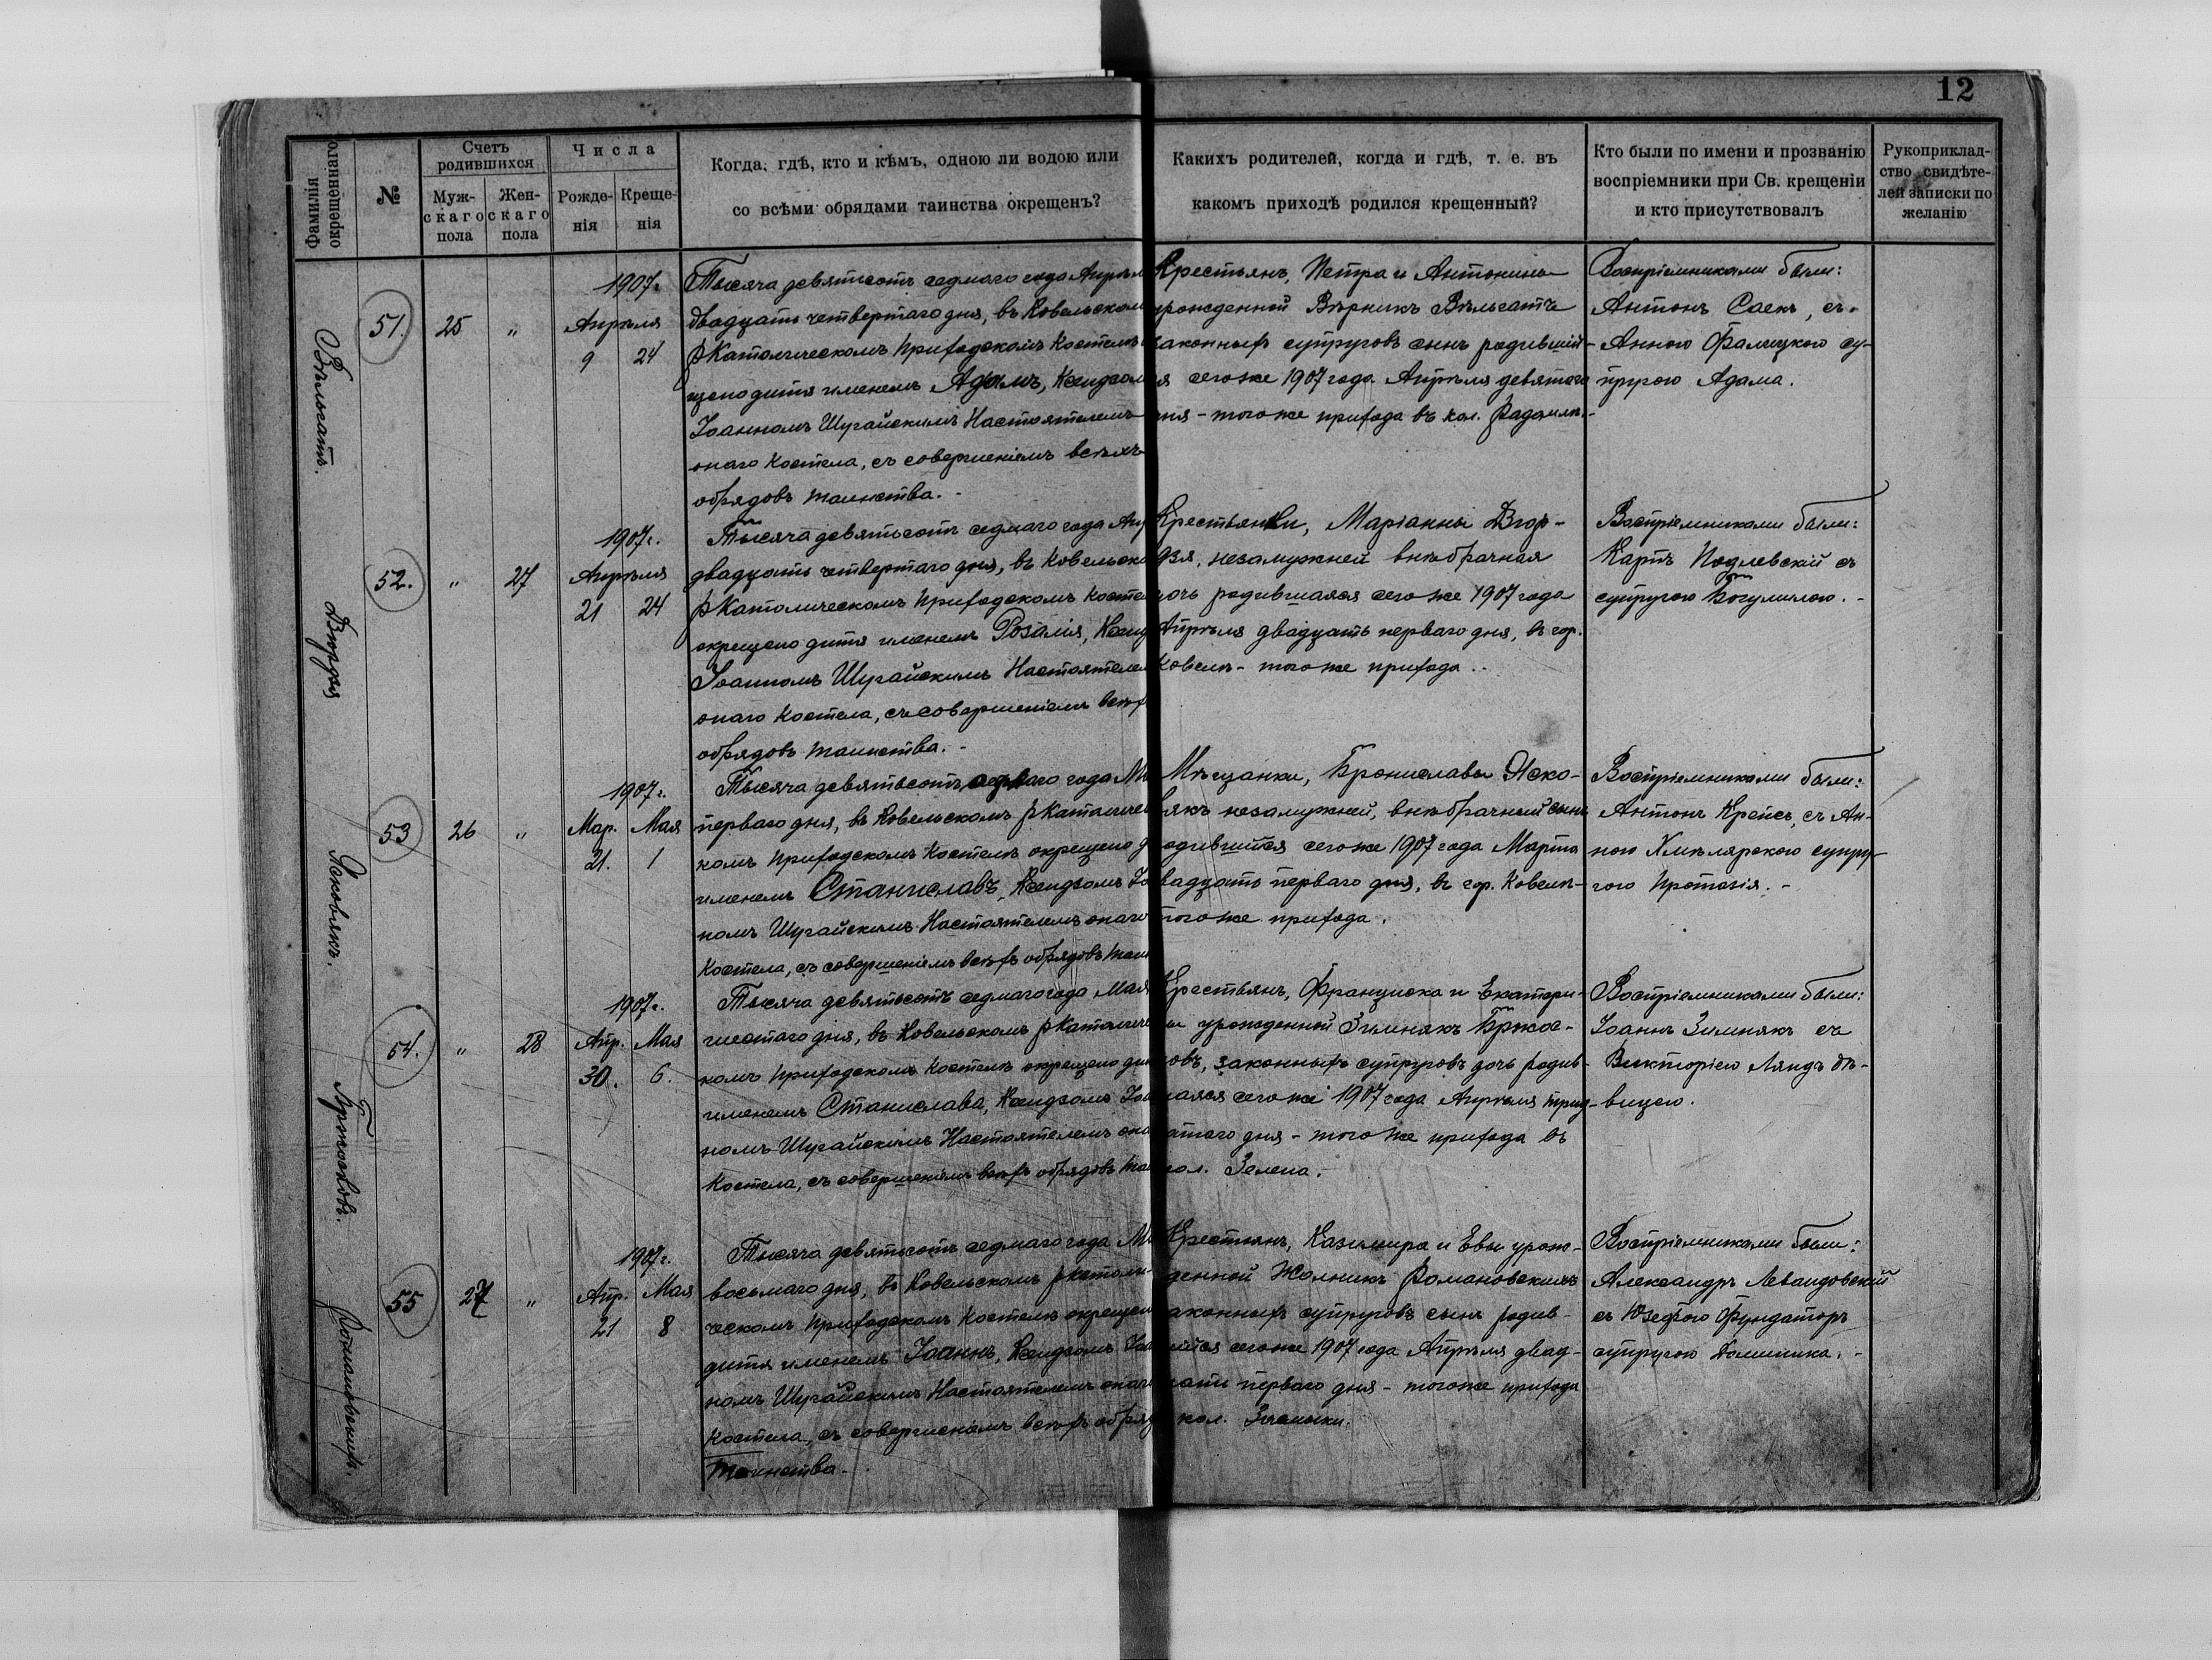 12
Фамилія окрещеннаго
№
Счетъ родившихся
Мужскаго пола
Женскаго пола
Числа
Рожденія
Крещенія
Когда, гдѣ, кто и кѣмъ, одною ли водою или
со всѣми обрядами таинства окрещенъ?
Какихъ родителей, когда и гдѣ, т. е. въ
какомъ приходѣ родился крещенный?
Кто были по имени и прозванію
воспріемники при Св. крещеніи
и кто присутствовалъ
Рукоприклад-
ство свидѣте-
лей записки по
желанію
51.
25
"
1907г.
Апрѣля
9 24
Тысяча девятьсотъ седмаго года Апрѣл
двадцать четвертаго дня, въ Ковельском
рКатолическомъ Приходскомъ Костелѣ
щено дитя именемъ Адамъ, Ксендзом
Іоанномъ Шугайскимъ Настоятелемъ
онаго Костела, съ совершеніемъ всѣхъ
обрядовъ таинства. -
Крестьянъ, Петра и Антонины
урожденной Вѣрникъ
законныхъ супруговъ сынъ родившій-
я сегоже 1907 года Апрѣля девятаго
дня - тогоже прихода въ кол.
Воспріемниками были:
Антонъ Саекъ, съ
Анною Фалицкою су-
пругою Адама.
52.
"
27
1907г.
Апрѣля
21 24
Тысяча девятьсотъ седмаго года Апр
двадцать четвертаго дня, въ Ковельско
рКатолическомъ Приходскомъ Косте
окрещено дитя именемъ Розалія, Ксенд
Іоанномъ Шугайскимъ Настоятелем
онаго Костела, съ совершеніемъ всѣх
обрядовъ таинства. -
Крестьянки, Маріанны
незамужней внѣбрачная
дочь родившаяся сегоже 1907 года
Апрѣля двадцать перваго дня, въ гор.
Ковелѣ - тогоже прихода..
Воспріемниками были:
Карлъ Подлевскій съ
супругою Богумилою. -
Ясковякъ.
53
26
"
1907г.
Мар. Мая
21. 1
Тысяча девятьсотъ седмаго года Ма
перваго дня, въ Ковельскомъ рКатоличес
комъ Приходскомъ Костелѣ окрещено д
именемъ Станиславъ, Ксендзомъ Іо
номъ Шугайскимъ Настоятелемъ онаго
Костела, съ совершеніемъ всѣхъ обрядовъ таин
Мѣщанки, Брониславы Яско-
вякъ незамужней, внѣбрачный сынъ
родившійся сегоже 1907 года Марта
двадцать перваго дня, въ гор. Ковелѣ-
тогоже прихода.
Воспріемниками были:
Антонъ Крейсъ, съ Ан-
ною Хмѣлярскою супру-
гою
54.
"
28
1907г.
Апр. Мая
30. 6.
Тысяча девятьсотъ седмаго года Мая
шестаго дня, въ Ковельскомъ рКатоличе
комъ Приходскомъ Костелѣ окрещено ди
именемъ Станислава, Ксендзомъ Іоа
номъ Шугайскимъ Настоятелемъ она
Костела, съ совершеніемъ всѣхъ обрядовъ таи
Крестьянъ, Франциска и Екатери-
ны урожденной Зимнякъ
законныхъ супруговъ дочь родив-
шаяся сегоже 1907 года Апрѣля трид-
цатаго дня - тогоже прихода въ
кол. Зелена.
Воспріемниками были:
Іоаннъ Зимнякъ съ
Викторіею Ляндъ дѣ-
вицею.
55
27
"
1907г.
Апр. Мая
21 8
Тысяча девятьсотъ седмаго года Ма
восьмаго дня, въ Ковельскомъ рКатоли-
ческомъ Приходскомъ Костелѣ окрещен
дитя именемъ Іоаннъ, Ксендзомъ Іоа
номъ Шугайскимъ Настоятелемъ онаг
Костела, съ совершеніемъ всѣхъ обряд
таинства. -
Крестьянъ, Казимира и Евы урож-
денной Жолникъ Романовскихъ
законныхъ супруговъ сынъ родив-
шійся сегоже 1907 года Апрѣля двад-
цать перваго дня - тогоже прихода
кол.
Воспріемниками были:
Александръ Левандовскій
съ Юзефою Фундаторъ
супругою Доминика. -